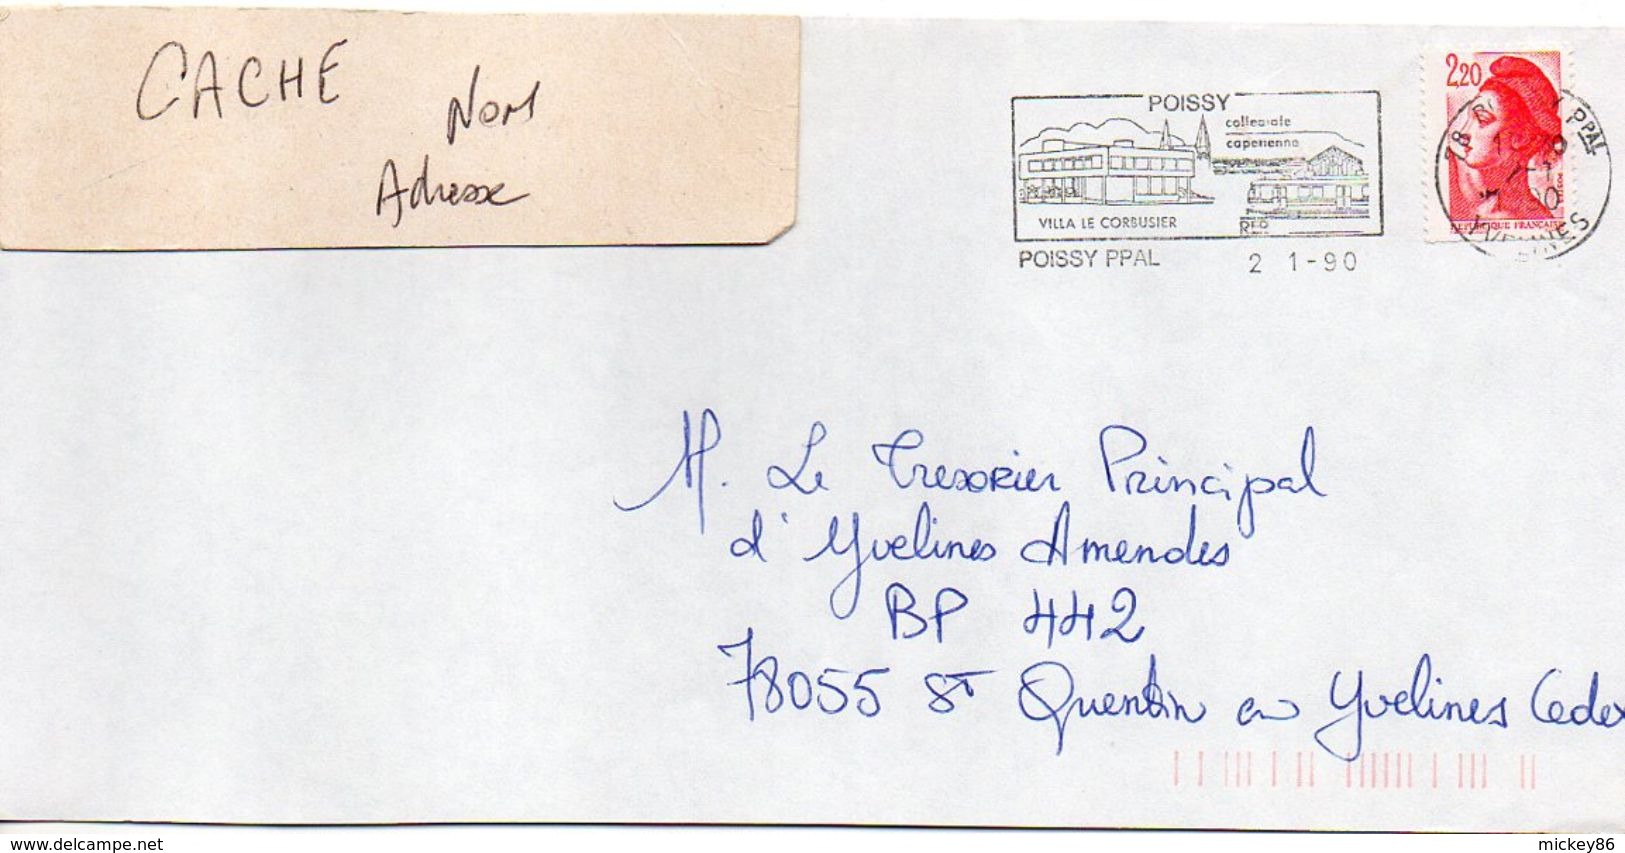 CACHE
Nom
Adresse
POISSY
collegiale
capetienne
VILLA LE CORBUSIER
RER
POISSY PPAL 2 1-90
2,20
78 PPAL
YVELINES
REPUBLIQUE FRANCAISE
M. Le Tresorier Principal
d'Yvelines Amendes
BP 442
78055 St Quentin en Yvelines Cedex
delcampe.net
mickey86